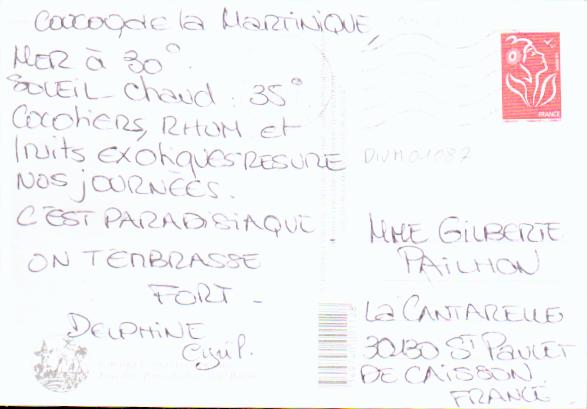 Coucou de la MARTINIQUE
MER à 30°.
SOLEIL chaud : 35°
Cocotiers, RHUM et
fruits exotiques RESUME
NOS JOURNÉES.
C'EST PARADISIAQUE.
ON T'EMBRASSE
FORT -
DELPHINE
Cyril.
FRANCE
DIVM01087
MME GILBERTE
PAILHON
La CANTARELLE
30130 ST PAULET
DE CAISSON
FRANCE